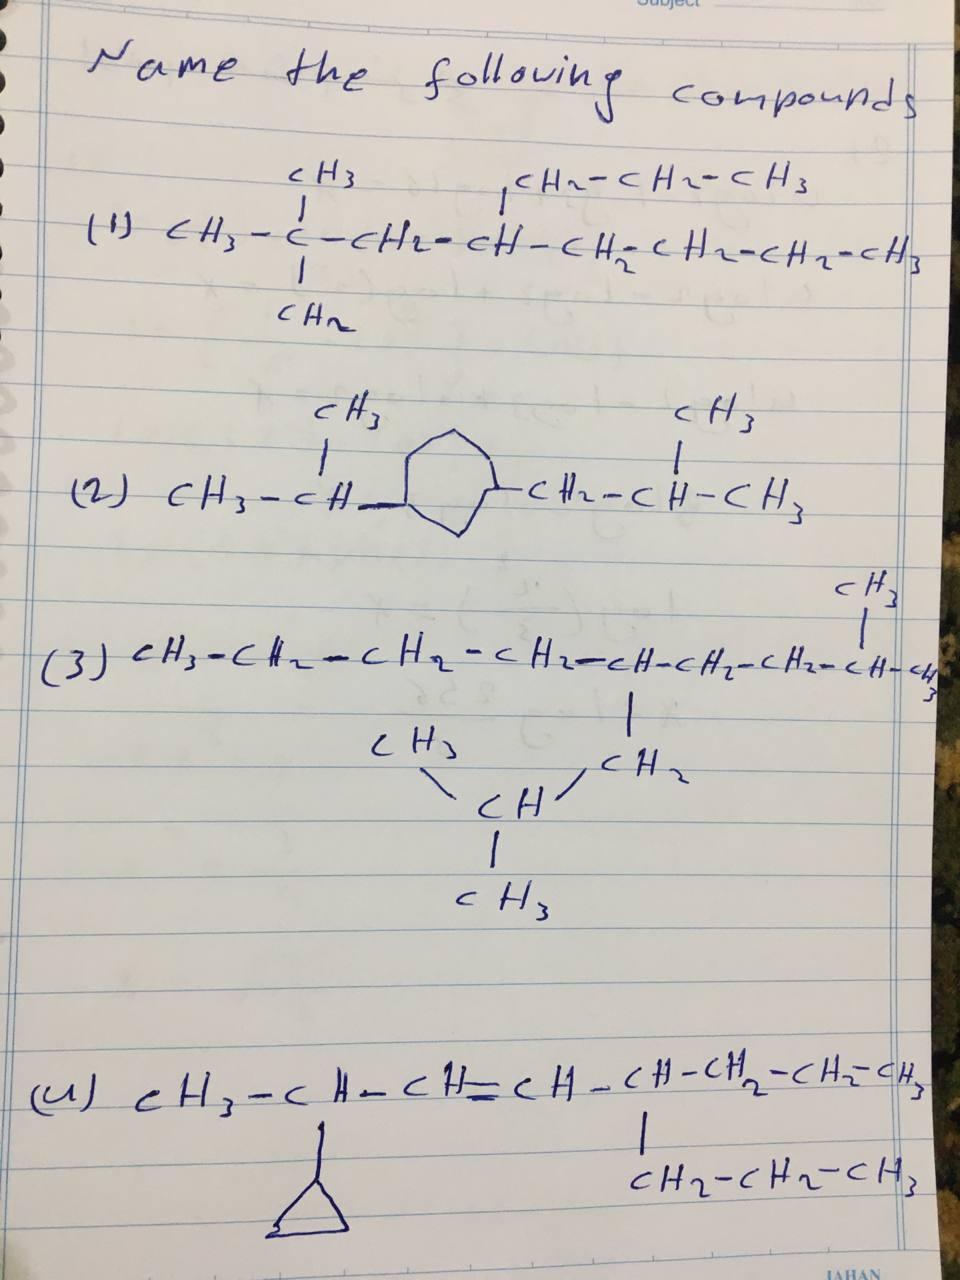 Subject
Name the following compounds
CH3 CH2-CH2-CH3
(1) CH3-C-CH2-CH-CH2-CH2-CH2-CH3
CH2
CH3 CH3
(2) CH3-CH CH2-CH-CH3
CH3
(3) CH3-CH2-CH2-CH2-CH-CH2-CH2-CH-CH3
CH3 CH2
CH
CH3
(4) CH3-CH-CH=CH-CH-CH2-CH2-CH3
CH2-CH2-CH3
JAHAN